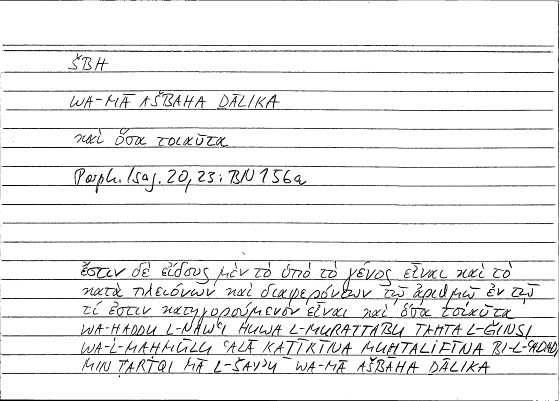 ŠBH
WA-MĀ AŠBAHA ḎĀLIKA
καὶ ὅσα τοιαῦτα
Porph. Isag. 20,23: BN 156a
ἔστιν δὲ εἴδους μὲν τὸ ὑπὸ τὸ γένος εἶναι καὶ τὸ
κατὰ πλειόνων καὶ διαφερόντων τῷ ἀριθμῷ ἐν τῷ
τί ἐστιν κατηγορούμενον εἶναι καὶ ὅσα τοιαῦτα
WA-ḤADDU L-NAWʿI HUWA L-MURATTABU TAḤTA L-ǦINSI
WA-L-MAḤMŪLU ʿALĀ KAṮĪRĪNA MUḪTALIFĪNA BI-L-ʿADADI
MIN ṬARĪQI MĀ L-ŠAYʾU WA-MĀ AŠBAHA ḎĀLIKA